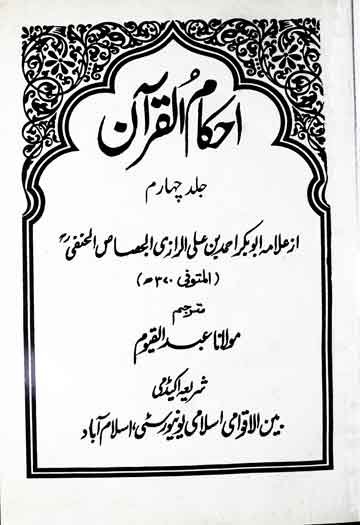 احکام القرآن
جلد چہارم
از علامہ ابوبکر احمد بن علی الرازی الجصاص الحنفی رح
(المتوفی ۳۷۰ھ)
مترجم
مولانا عبد القیوم
شریعہ اکیڈمی
بین الاقوامی اسلامی یونیورسٹی، اسلام آباد